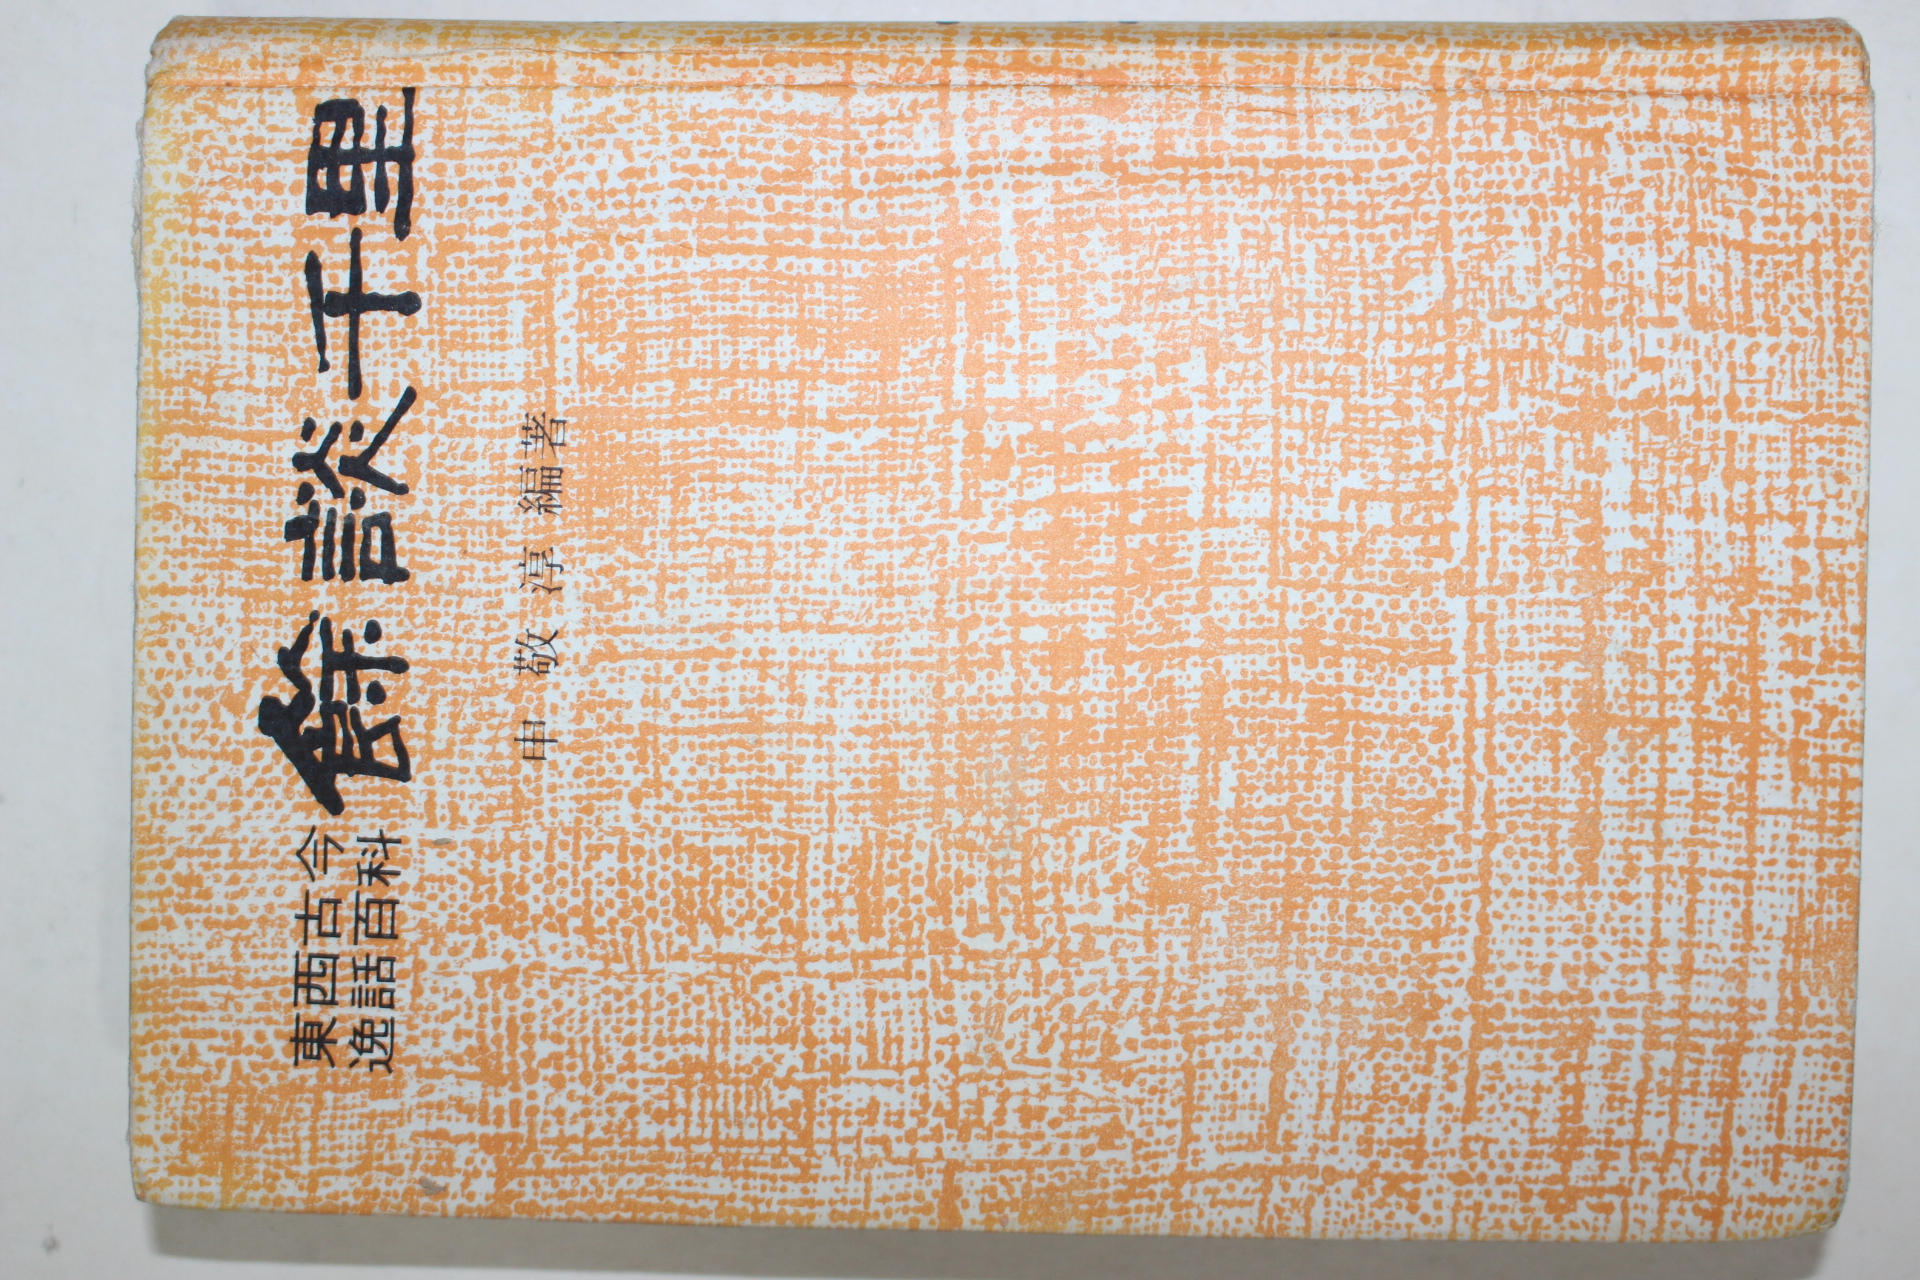 東西古今
逸話百科
餘談千里
申敬淳 編著